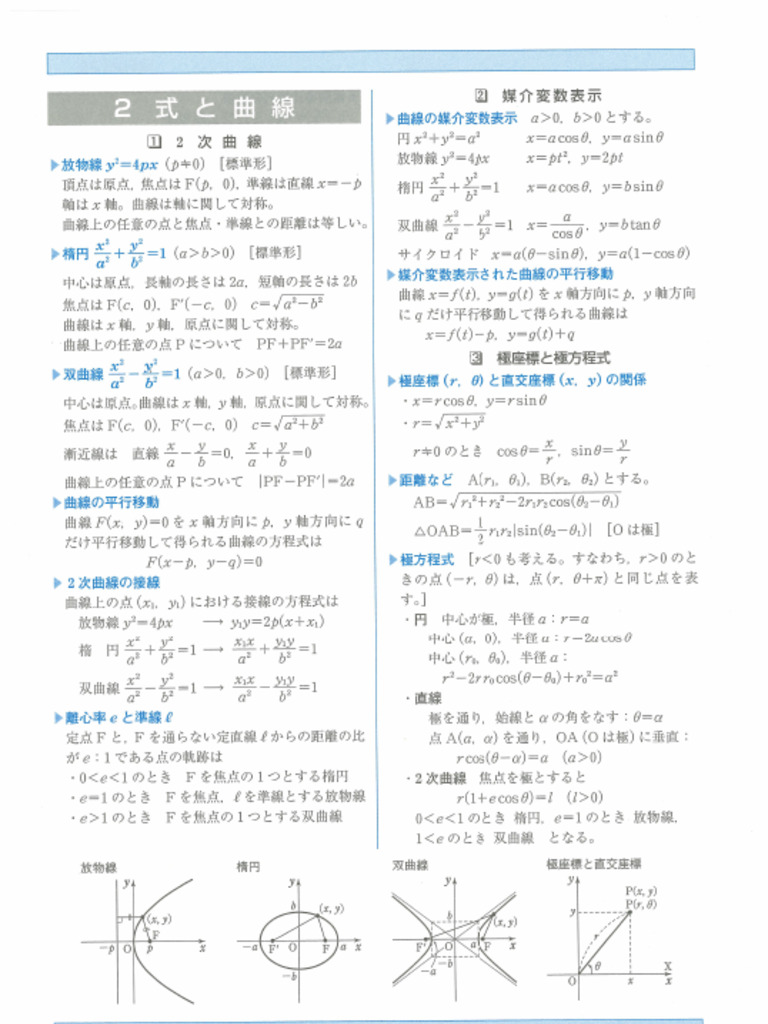 2 式と曲線
1 2次曲線
▶放物線 y²=4px (p≠0) [標準形]
頂点は原点, 焦点は F(p, 0), 準線は直線 x=−p
軸は x 軸。曲線は軸に関して対称。
曲線上の任意の点と焦点・準線との距離は等しい。
▶楕円 x²/a²+y²/b²=1 (a>b>0) [標準形]
中心は原点, 長軸の長さは 2a, 短軸の長さは 2b
焦点は F(c, 0), F′(−c, 0) c=√(a²−b²)
曲線は x 軸, y 軸, 原点に関して対称。
曲線上の任意の点 P について PF+PF′=2a
▶双曲線 x²/a²−y²/b²=1 (a>0, b>0) [標準形]
中心は原点。曲線は x 軸, y 軸, 原点に関して対称。
焦点は F(c, 0), F′(−c, 0) c=√(a²+b²)
漸近線は 直線 x/a−y/b=0, x/a+y/b=0
曲線上の任意の点 P について |PF−PF′|=2a
▶曲線の平行移動
曲線 F(x, y)=0 を x 軸方向に p, y 軸方向に q
だけ平行移動して得られる曲線の方程式は
F(x−p, y−q)=0
▶2次曲線の接線
曲線上の点 (x₁, y₁) における接線の方程式は
放物線 y²=4px ⟶ y₁y=2p(x+x₁)
楕 円 x²/a²+y²/b²=1 ⟶ x₁x/a²+y₁y/b²=1
双曲線 x²/a²−y²/b²=1 ⟶ x₁x/a²−y₁y/b²=1
▶離心率 e と準線 ℓ
定点 F と, F を通らない定直線 ℓ からの距離の比
が e:1 である点の軌跡は
・0<e<1 のとき F を焦点の1つとする楕円
・e=1 のとき F を焦点, ℓ を準線とする放物線
・e>1 のとき F を焦点の1つとする双曲線
2 媒介変数表示
▶曲線の媒介変数表示 a>0, b>0 とする。
円 x²+y²=a² x=acosθ, y=asinθ
放物線 y²=4px x=pt², y=2pt
楕円 x²/a²+y²/b²=1 x=acosθ, y=bsinθ
双曲線 x²/a²−y²/b²=1 x=a/cosθ, y=btanθ
サイクロイド x=a(θ−sinθ), y=a(1−cosθ)
▶媒介変数表示された曲線の平行移動
曲線 x=f(t), y=g(t) を x 軸方向に p, y 軸方向
に q だけ平行移動して得られる曲線は
x=f(t)−p, y=g(t)+q
3 極座標と極方程式
▶極座標 (r, θ) と直交座標 (x, y) の関係
・x=rcosθ, y=rsinθ
・r=√(x²+y²)
r≠0 のとき cosθ=x/r, sinθ=y/r
▶距離など A(r₁, θ₁), B(r₂, θ₂) とする。
AB=√(r₁²+r₂²−2r₁r₂cos(θ₂−θ₁))
△OAB=1/2 r₁r₂|sin(θ₂−θ₁)| [O は極]
▶極方程式 [r<0 も考える。すなわち, r>0 のと
きの点 (−r, θ) は, 点 (r, θ+π) と同じ点を表
す。]
・円 中心が極, 半径 a:r=a
中心 (a, 0), 半径 a:r=2acosθ
中心 (r₀, θ₀), 半径 a:
r²−2rr₀cos(θ−θ₀)+r₀²=a²
・直線
極を通り, 始線と α の角をなす:θ=α
点 A(a, α) を通り, OA (O は極) に垂直:
rcos(θ−α)=a (a>0)
・2次曲線 焦点を極とすると
r(1+ecosθ)=l (l>0)
0<e<1 のとき 楕円, e=1 のとき 放物線,
1<e のとき 双曲線 となる。
放物線
y
(x, y)
F
−p O p x
楕円
y
b
(x, y)
−a F′ O F a x
−b
双曲線
y
b
(x, y)
F′ O a F x
−a −b
極座標と直交座標
y
P(x, y)
P(r, θ)
y
r
θ
X
O x x